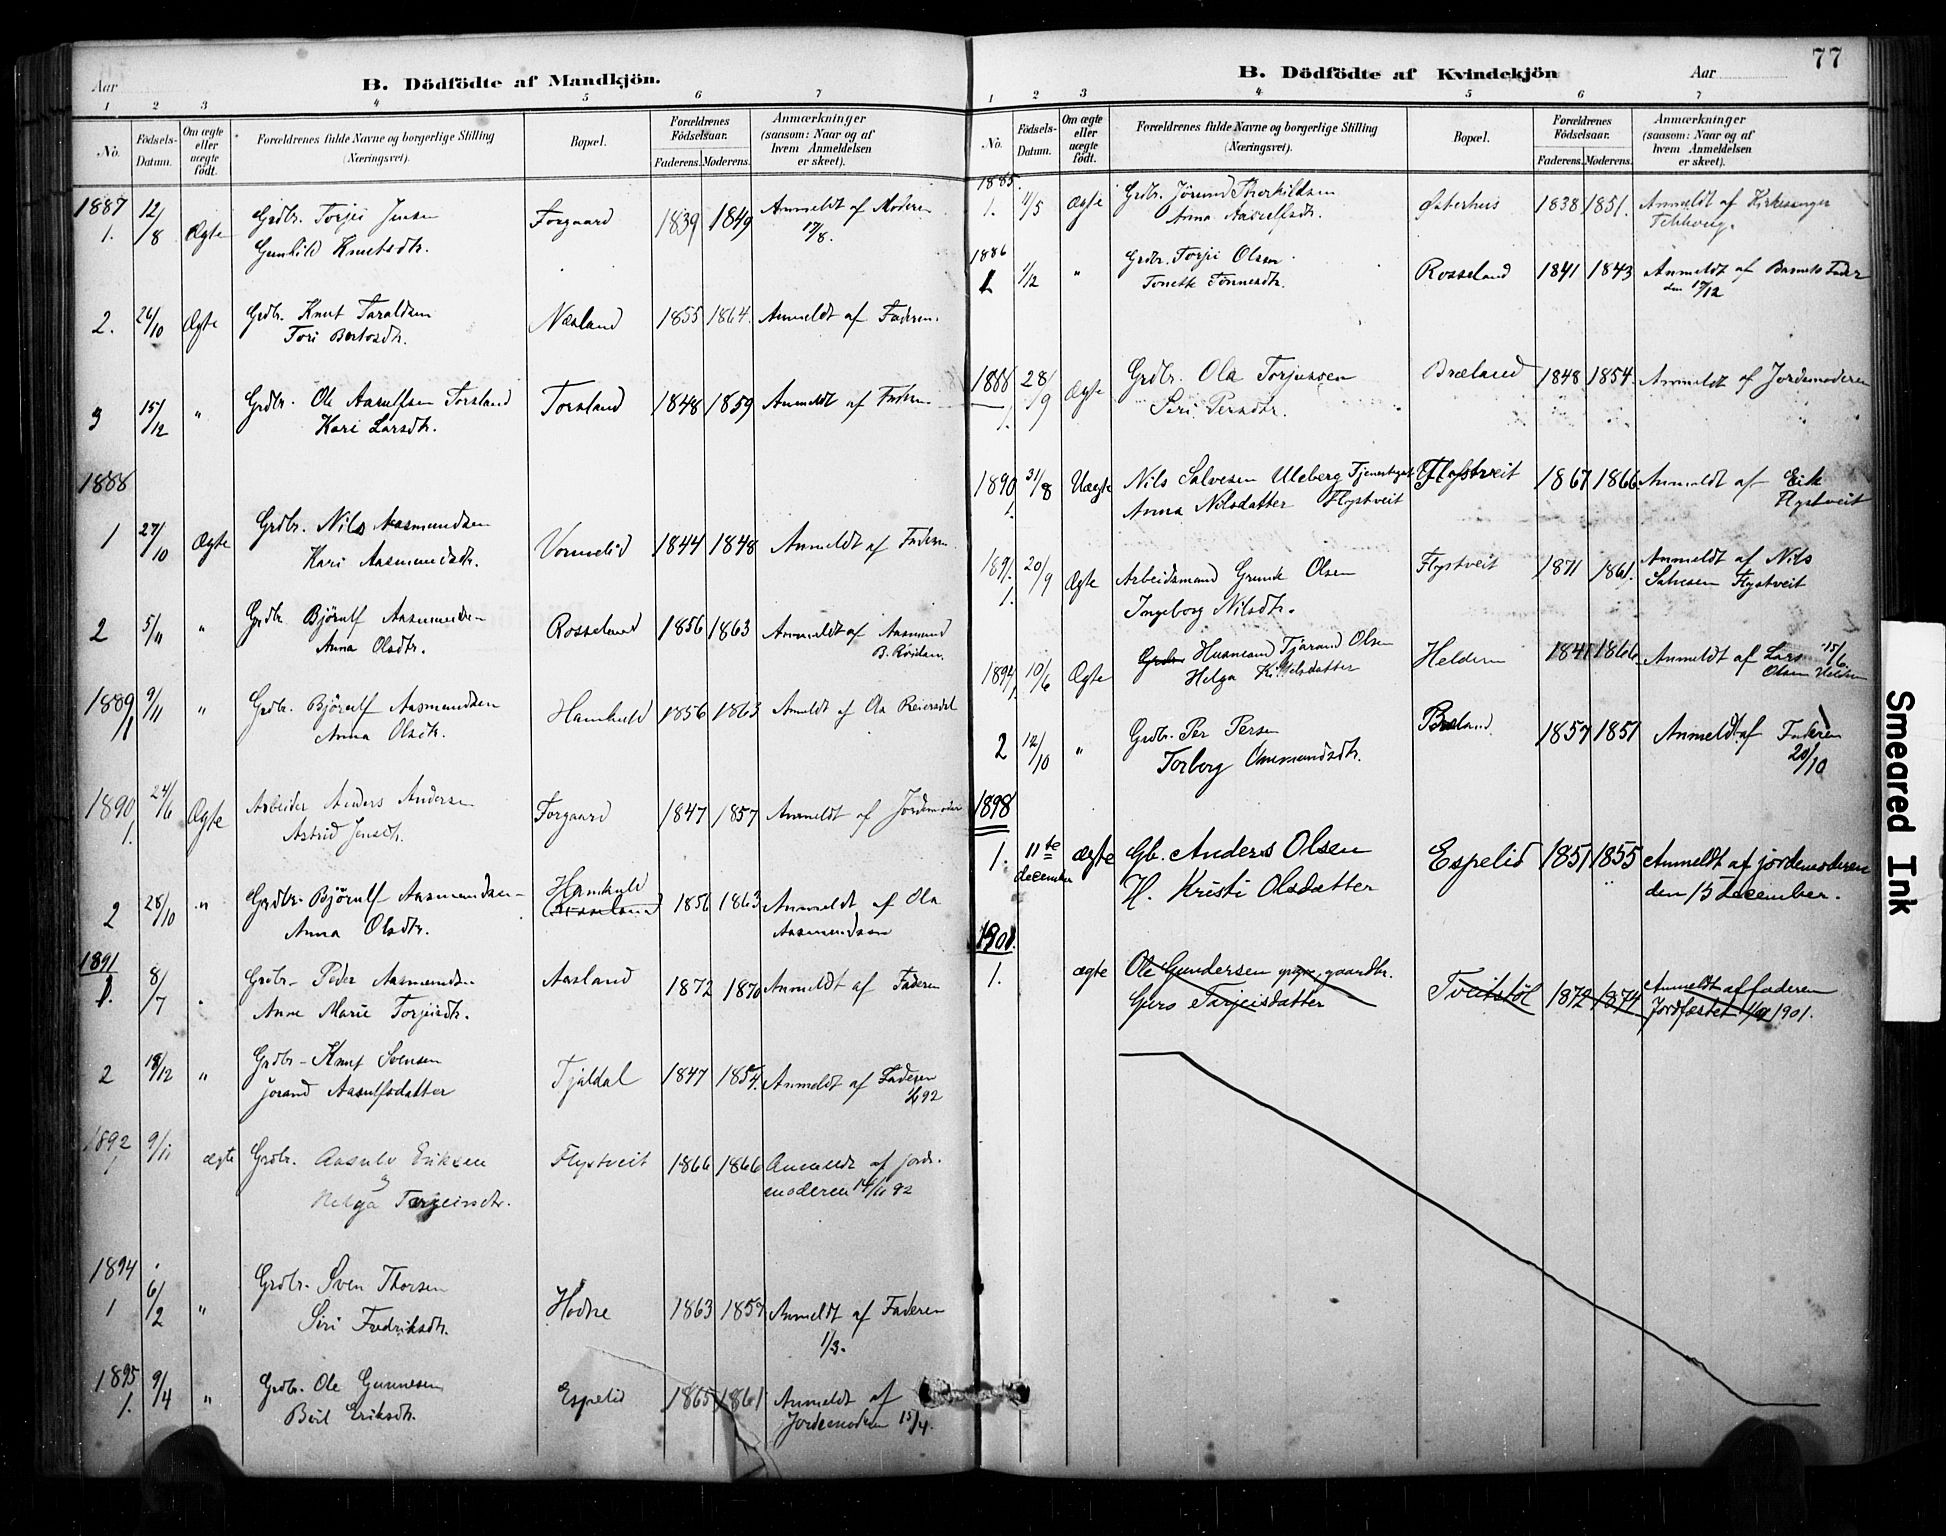 Aar
B. Dödfödte af Mandkjön.
1 2 3 4 5 6 7
No. Födsels-Datum. Om ægte eller uægte födt. Forældrenes fulde Navne og borgerlige Stilling (Næringsvei). Bopæl. Forældrenes Födselsaar. Faderens. Moderens. Anmærkninger (saasom: Naar og af hvem Anmeldelsen er skeet).
1887 12/8
1. Ægte Grdbr. Torjei Jensen Forgaard 1839 1849 Anmeldt af Moderen
Gunhild Knutsdtr. 17/8.
2. 26/10 Ægte Grdbr. Knut Taraldsen Næsland 1855 1864. Anmeldt af Faderen.
Tori Bertosdtr.
3 15/12 " Grdbr. Ole Aasulfsen Torsland Torsland 1848 1859 Anmeldt af Faderen
Kari Larsdtr.
1888
1 27/10 Ægte Grdbr. Nils Aasmundsen Vormelid 1844 1848 Anmeldt af Faderen.
Kari Aasmundsdtr.
2 5/11 " Grdbr Björulf Aasmundsen Rosseland 1856 1863 Anmeldt af Aasmund
Anna Olsdtr. B.
1889 9/11 " Grdbr. Björulf Aasmundsen Hamkuld 1856 1863 Anmeldt af Ola Reiersdal
1 Anna Olsdtr.
1890 24/6 Ægte Arbeider Anders Andersen Forgaard 1847 1857 Anmeldt af Jordemoder
1. Astrid Jensdtr.
2 28/10 " Grdbr. Björulf Aasmundsen Hamkuld Rosseland 1856 1863 Anmeldt af Ola
Anna Olsdtr. Aasmundsen
1891
1. 8/7 " Grdbr- Peder Aasmundsen Aasland 1872 1870 Anmeldt af Faderen
Anne Marie Torjeisdtr.
2 18/12 " Grdbr- Knut Svensen Tjaldal 1847 1854. Anmeldt af Faderen
Jorand Aasulfsdatter 92
1892 9/11 ægte Grdbr. Aasulv Eriksen Flystveit 1866 1866 Anmeldt af jorde-
1 Helga Torjeisdtr. moderen 14/11 92
1894
1 6/2 " Grdbr. Sven Thorsen Hodne 1863 1857 Anmeldt af Faderen
Siri Fredriksdtr. 1/3.
1895 9/4 " Grdbr. Ole Gunnesen Espelid 1865 1861 Anmeldt af
1. Eriksdtr. Jordemoderen 15/4.
77
B. Dödfödte af Kvindekjön Aar
1 2 3 4 5 6 7
No. Födsels-Datum. Om ægte eller uægte födt. Forældrenes fulde Navne og borgerlige Stilling (Næringsvei). Bopæl. Forældrenes Födselsaar. Faderens. Moderens. Anmærkninger (saasom: Naar og af hvem Anmeldelsen er skeet).
1885.
1. 4/5 Ægte Grdbr. Jörund Therkildsen Østerhus 1838 1851. Anmeldt af Kirkesanger
Anna Aasulfsdtr. Fekkveig.
1886
1. 1/12 " Grdbr. Torjei Olsen Rosseland 1841 1843 Anmeldt af Barnets Fader
Tonette Tønnesdtr. den 17/12
1888 28/9 Ægte Grdbr. Ola Torjussen Bræland 1848 1854. Anmeldt af Jordemoderen
1. Siri Persdtr.
1890 31/8 Uægte Nils Salvesen Uleberg Tjenestegut Flystveit 1867 1866 Anmeldt af Erik
1. Anna Nilsdatter Flystveit Flystveit
1891. 20/9 Ægte Arbeidsmand Grunde Olsen Flystveit 1871 1861. Anmeldt af Nils
1. Ingeborg Nilsdtr. Salvesen Flystveit
1894 10/6 Ægte Grdbr. Husmand Tjøran Olsen Helderen 1841 1866 Anmeldt af Lars 15/6
1. Helga Kittelsdatter Olsen Helderen
2 12/10 " Grdbr. Per Persen Bræland. 1857 1851 Anmeldt af Faderen
Torborg Ommundsdtr. 20/10
1898
1. 11te december ægte Gb. Anders Olsen Espelid 1851 1855 Anmeldt af jordemoderen
H. Kristi Olsdatter den 13 december.
1901.
1. ægte Ole Gundersen yngre, gaardbr. Tveitstøl 1872 1874 Anmeldt af faderen
Guro Tarjeisdatter Jordfæstet 11/9 1901.
Smeared Ink